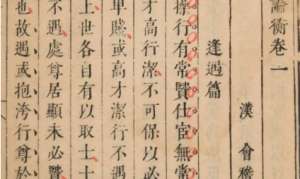 論衡卷一
漢會稽
逢遇篇
操行有常賢仕宦無常
才高行潔不可保以必
卑賤或高才潔行不遇
上世各自有以取士士
不遇處尊居顯未必賢
也故遇或抱洿行尊於